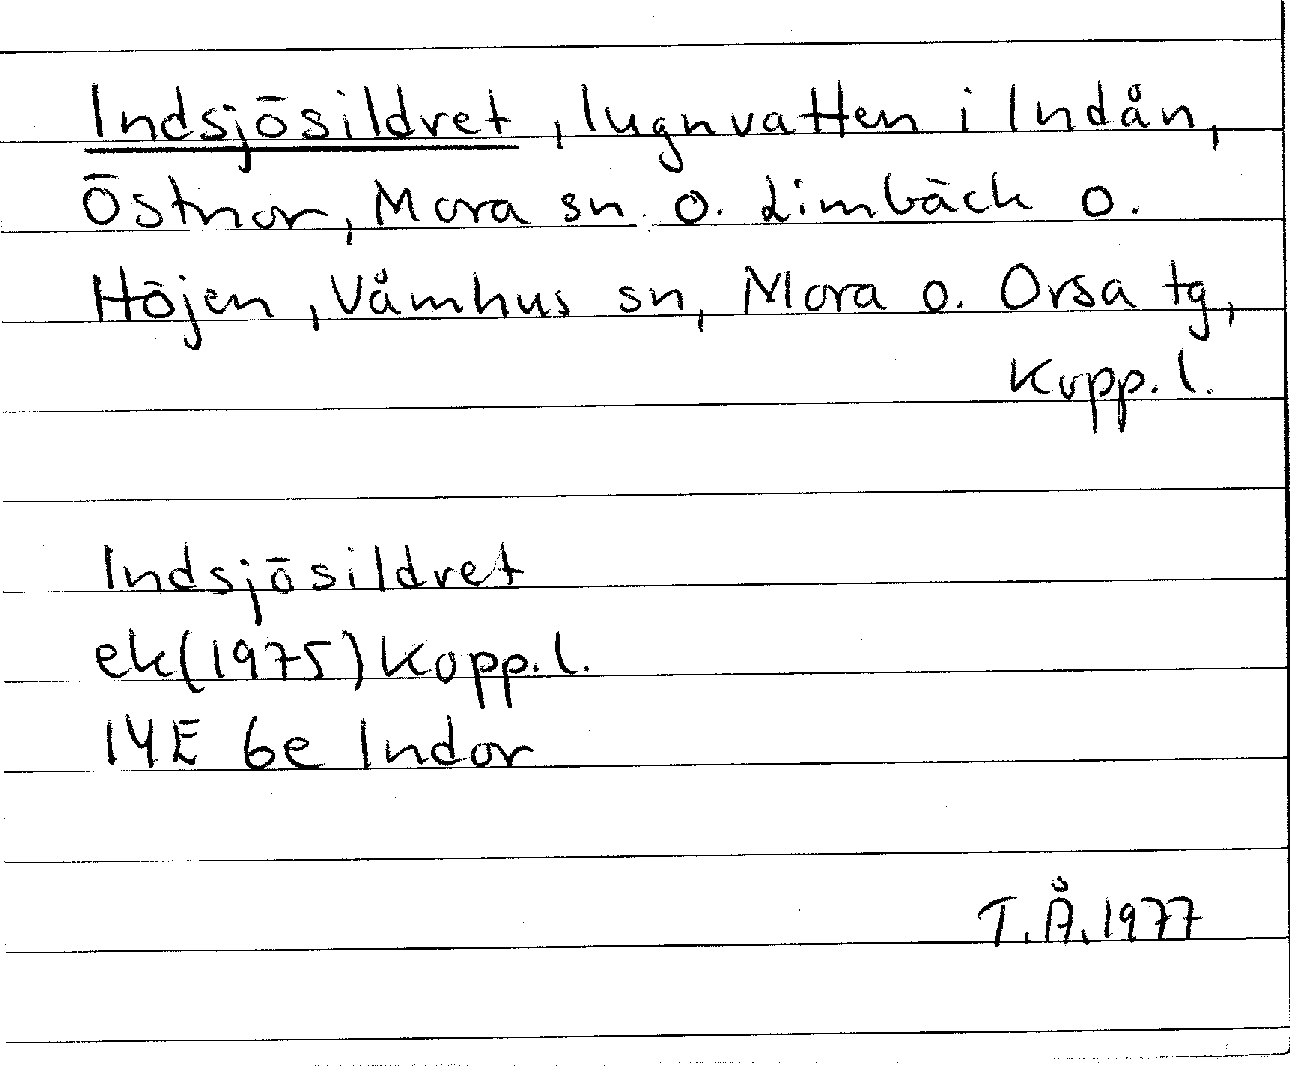 Indsjösildret, lugnvatten i Indån,
Östnor, Mora sn. o. Limbäck o.
Höjen, Våmhus sn, Mora o. Orsa tg,
Kopp. l.
Indsjösildret
ek(1975) Kopp. l.
14E 6e Indor
T.Å. 1977